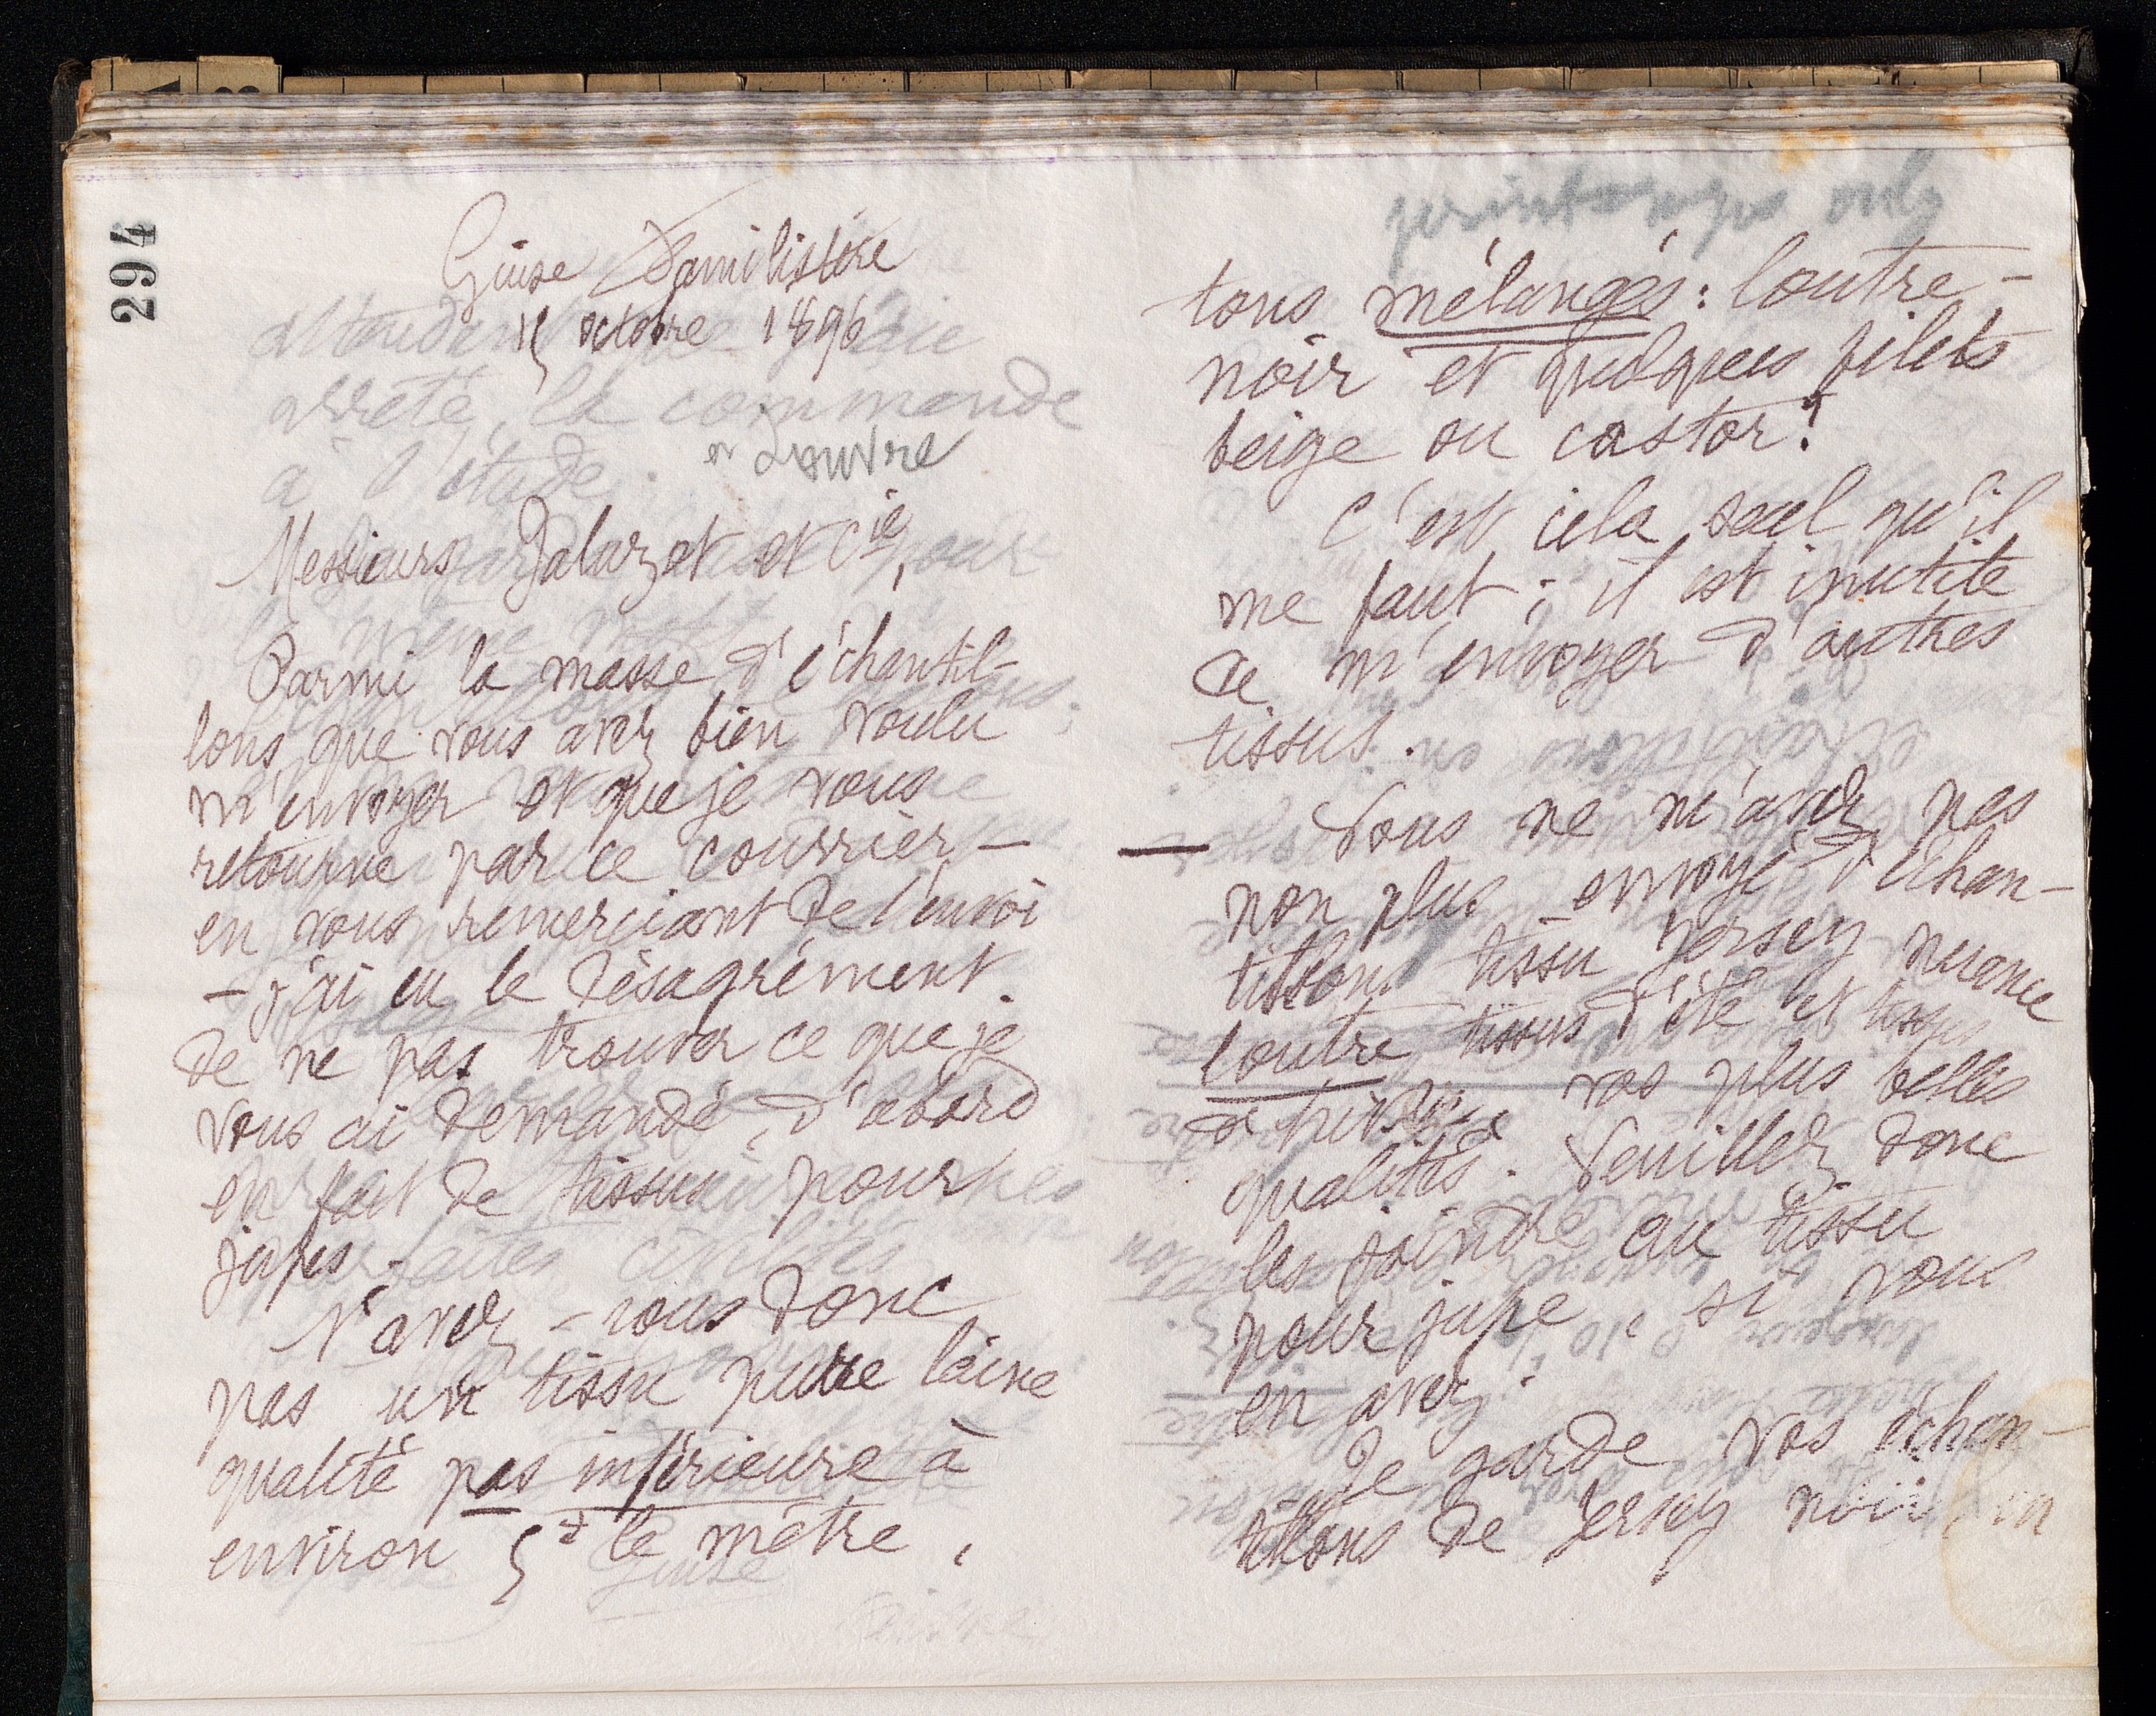 294
Guise Familistère
15 octobre 1896
et Louvre
Messieurs Jaluzot et Cie,
Parmi la masse d'échantil-
lons que vous avez bien voulu
m'envoyer et que je vous
retourne par ce courrier –
en vous remerciant de l'envoi
– j'ai eu le désagrément
de ne pas trouver ce que je
vous ai demandé, d'abord
en fait de tissus pour
jupes.
N'avez-vous donc
pas un tissu pure laine
qualité pas inférieure à
environ 5f le mètre,
printemps only
tons mélangés : loutre –
noir et quelques filets
beige ou castor !
C'est cela seul qu'il
me faut ; il est inutile
de m'envoyer d'autres
tissus.
— Vous ne m'avez pas
non plus envoyé d'échan-
tillon tissu Jersey nuance
loutre tissus d'été et tissus
d'hiver vos plus belles
qualités. Veuillez donc
les joindre au tissu
pour jupe, si vous
en avez.
Je garde vos échan-
tillons de Jersey noir en